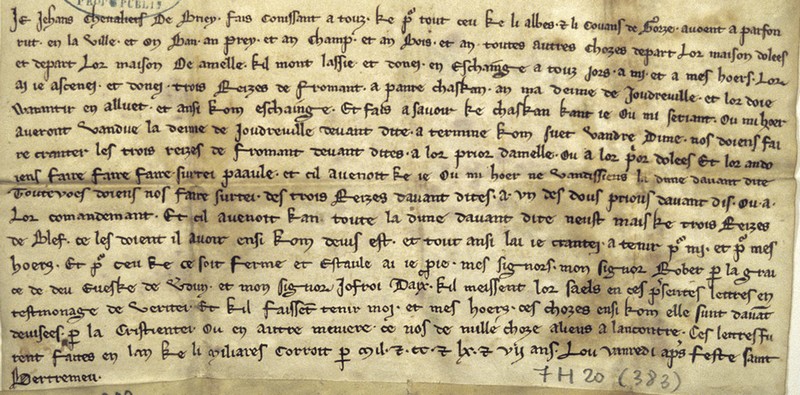 PROPUBLIC
Je Jehans Chevaliers De Briey. fais Conissant a touz. ke p tout ceu ke li abbes. ⁊ li Covans de Gorze. avoent a parfon
rut. en la ville. et on Ban. an prey. et an champ. et an Bois. et an toutes autres chozes depart Lor maison dolees
et depart Lor maison De amelle. kil mont lassie et donei. en Eschainge a touz jors. a mi. et a mes hoers. Lor
ai ie ascenei. et donei. trois Reizes de Fromant. a panre chaskan. an ma deime de Joudreville. et lor doie
Warantir en alluet. et ansi kom eschainge. Et fais a savoir ke chaskan kant ie Ou mi seriant. Ou mi hoer
averont Vandue la deime de Joudreville devant dite. a termine kom suet vandre Dime. nos doiens fai
re cranter les trois reizes de Fromant devant dites. a lor prior damelle. Ou a lor por dolees Et lor an do
iens faire faire faire surtei paaule. et cil avenoit ke ie Ou mi hoer ne Vandissiens la dime davant dite
Toutevoes doiens nos faire surtei. des trois Reizes davant dites. a vn des dous prious davant dis. Ou. a.
Lor comandemant. Et cil avenoit kan toute la dime davant dite neust mais ke trois Reizes
de Blef. ce les doient il avoir ensi kom devis est. et tout ansi lai ie crantei. a tenir p mi. et p mes
hoers. Et p ceu ke ce soit ferme et Estaule ai ie pie. mes signors. mon signor Robet p la grai
ce de deu Eveske de Vdun. et mon signor Jofroi Daix. kil meissent lor saels en ces psentes lettres en
testmonage de Veritei. Et kil faissent tenir moi. et mes hoers. ces chozes ensi kom elle sunt davat
devisees. p la Cristientei Ou en autre meniere. ce nos de nulle choze aliens a lancontre. Ces lettres fu
rent faites en lan ke li miliares Corroit p mil. ⁊. cc. ⁊ lx. ⁊ vii ans. Lou vanredi aps feste saint
Bertremeu.
7 H 20 (383)